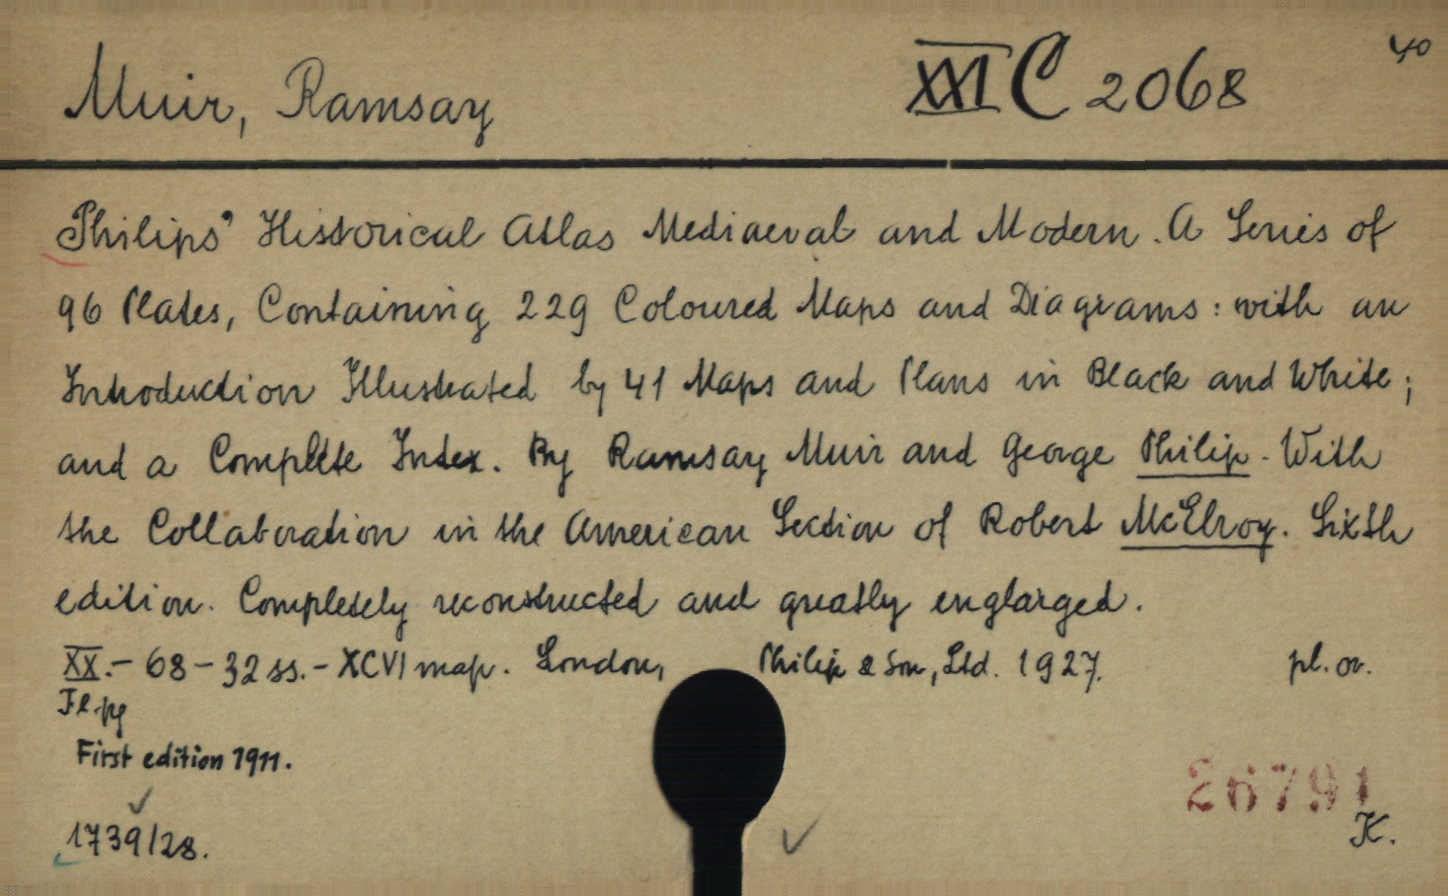 Muir, Ramsay XXI C 2068 40
Philips' Historical Atlas Mediaeval and Modern. A Series of
96 Plates, Containing 229 Coloured Maps and Diagrams: with an
Introduction Illustrated by 41 Maps and Plans in Black and White;
and a Complete Index. By Ramsay Muir and George Philip. With
the Collaboration in the American Section of Robert McElroy. Sixth
edition. Completely reconstructed and greatly englarged.
XX.- 68 - 32 ss. - XCVI map. London, Philip & Son, Ltd. 1927. pl. or.
First edition 1911.
26791
1739/28. K.